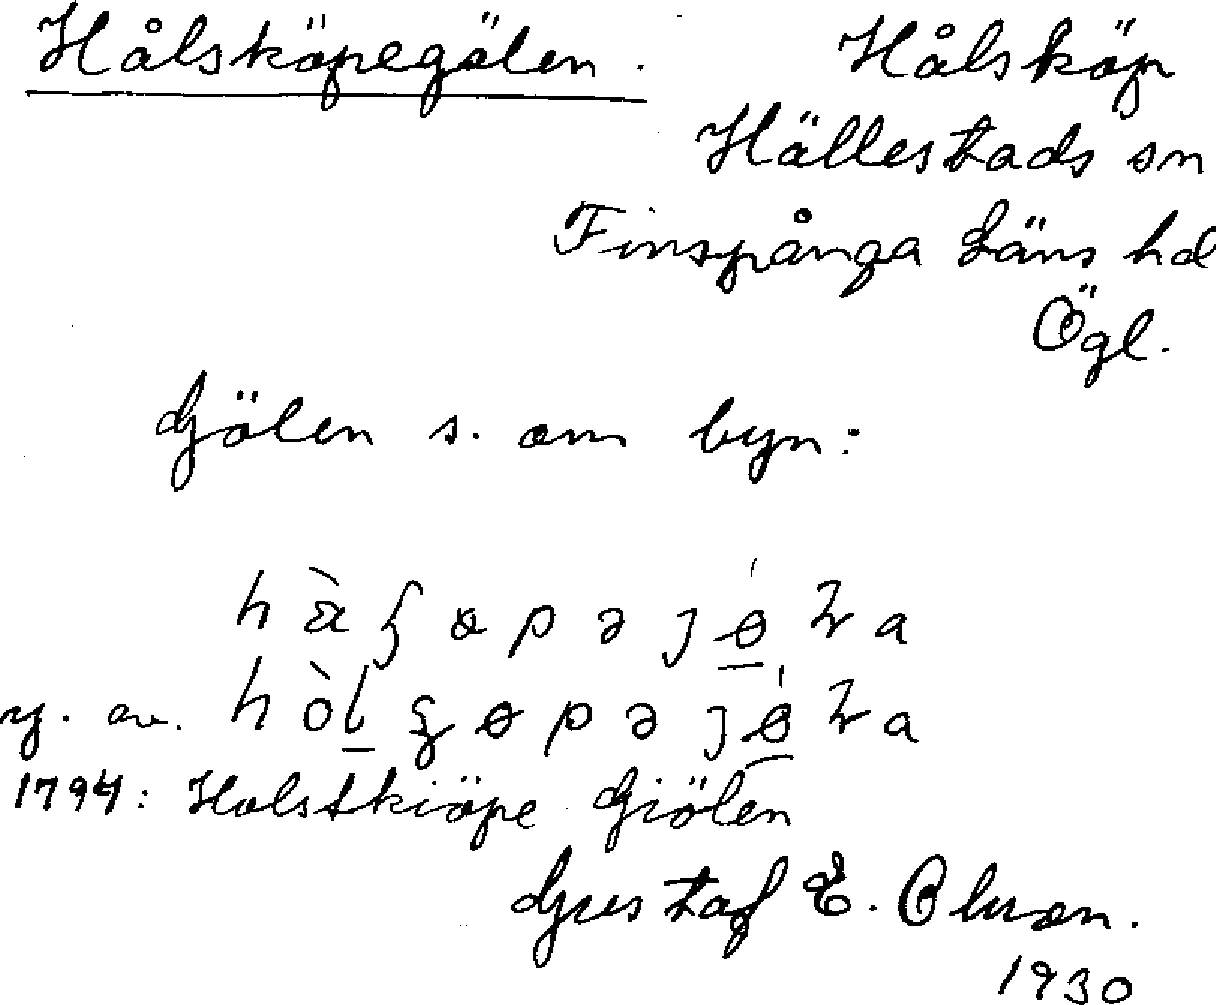 Hålsköpegölen. Hålsköp
Hällestads sn
Finspånga Läns hd
Ögl.
Gölen s. om byn:
y. av.
1794: Holstkiöpe Giölen
Gustaf E. Olsson.
1930